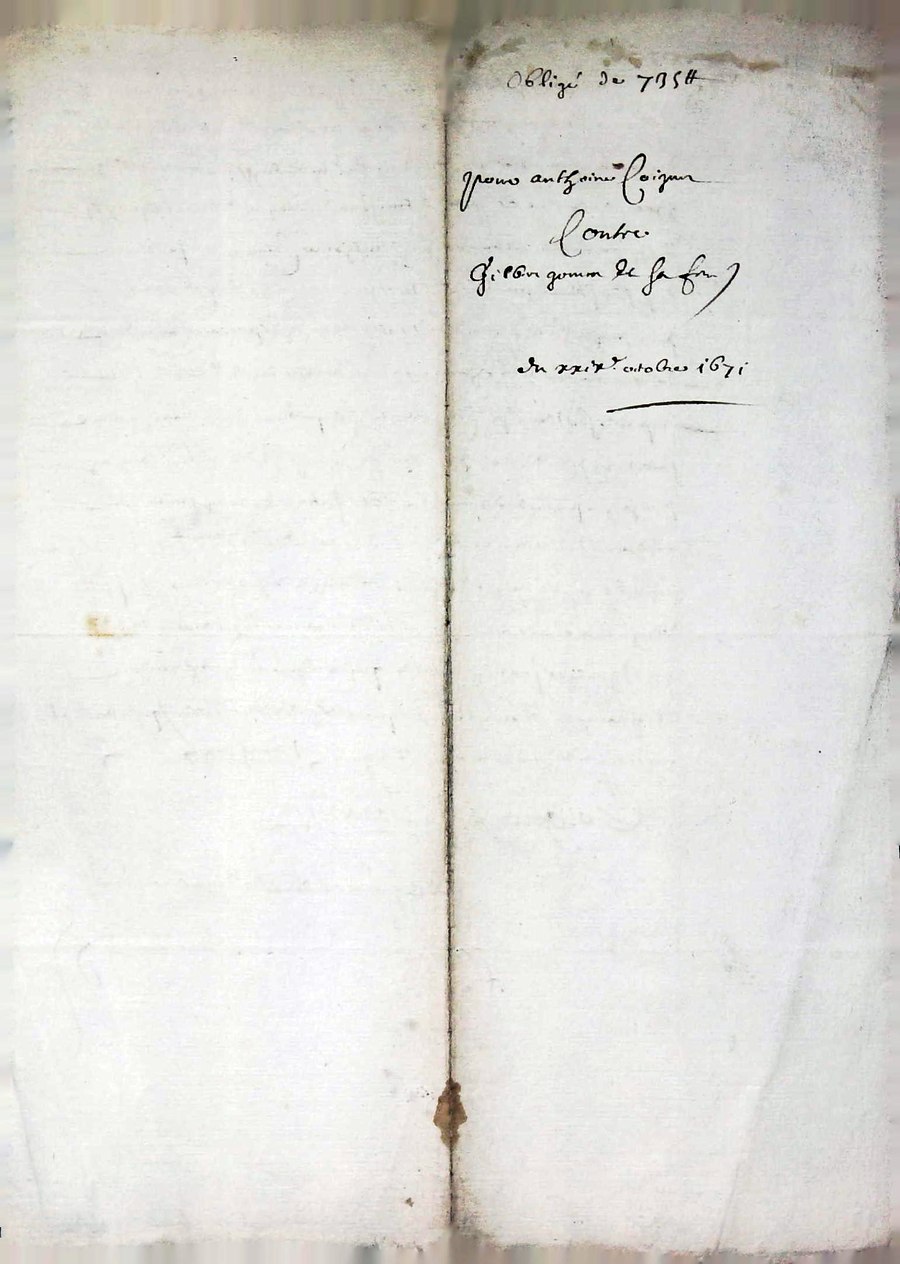 Obligé de 735 ₶
pour anthoine Coignet
Contre
Gilbert et sa fem
du xxixe octobre 1671